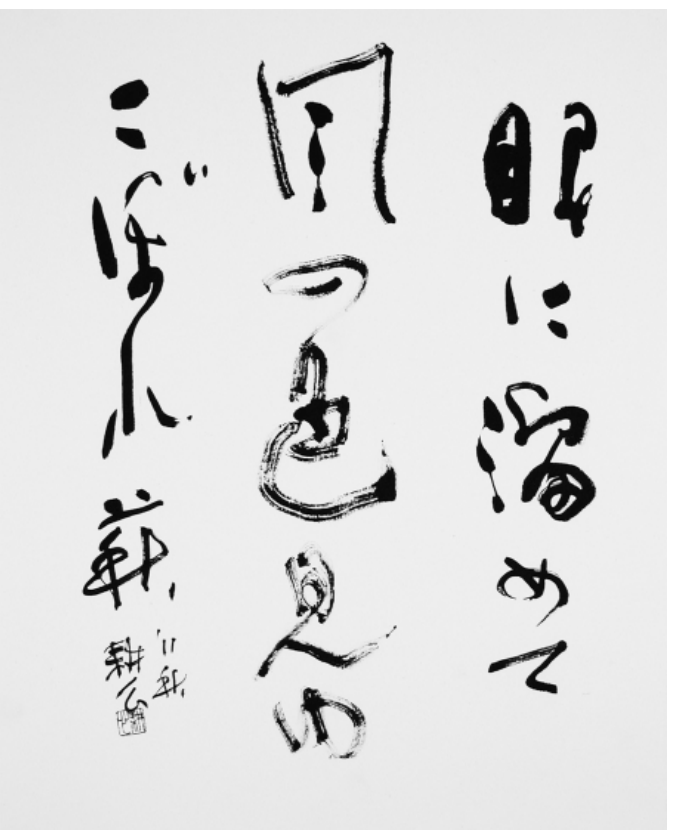 眼に溜めて
風の色見ゆ
こぼれ萩
'11秋